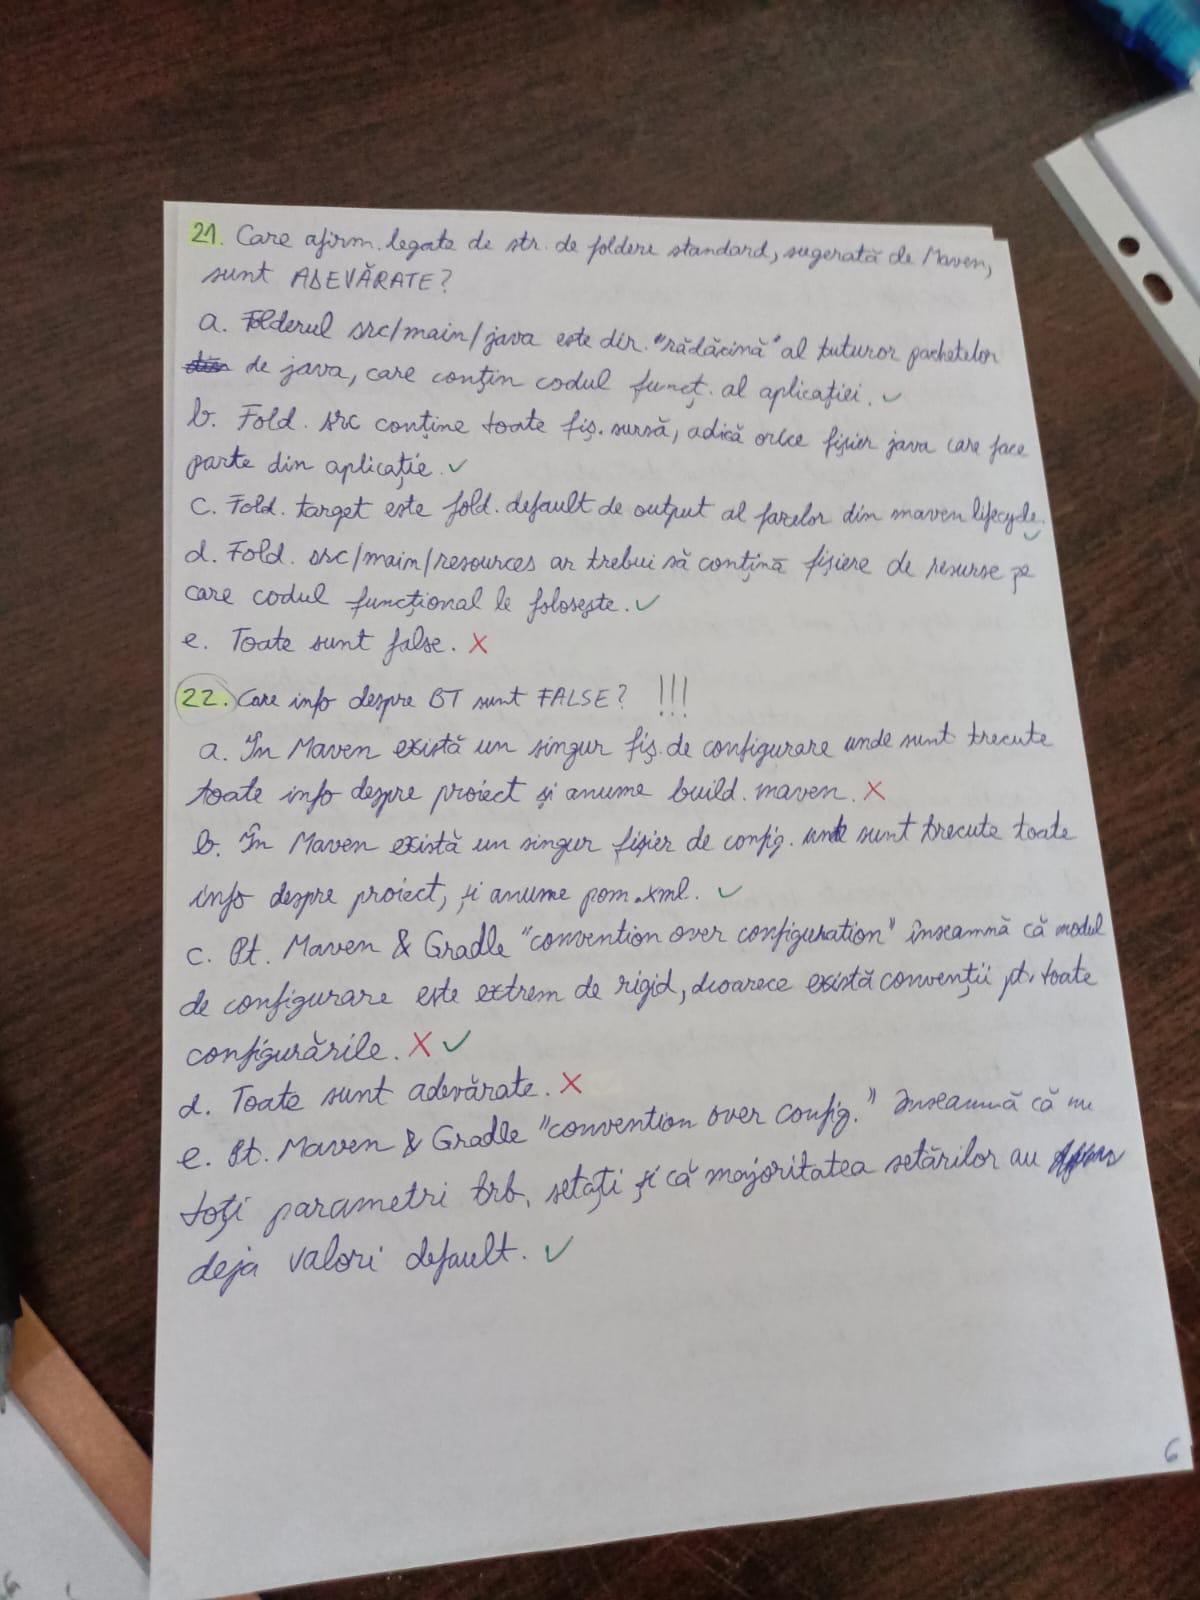 21. Care afirm. legate de str. de foldere standard, sugerată de Maven,
sunt ADEVĂRATE?
a. Folderul src/main/java este dir. "rădăcină" al tuturor pachetelor
de java, care conțin codul funcț. al aplicației. ✓
b. Fold. src conține toate fiș. sursă, adică orice fișier java care face
parte din aplicație. ✓
c. Fold. target este fold. default de output al fazelor din maven lifecycle. ✓
d. Fold. src/main/resources ar trebui să conțină fișiere de resurse pe
care codul funcțional le folosește. ✓
e. Toate sunt false. X
22. Care info despre BT sunt FALSE? !!!
a. În Maven există un singur fiș. de configurare unde sunt trecute
toate info despre proiect și anume build.maven. X
b. În Maven există un singur fișier de config. unde sunt trecute toate
info despre proiect, și anume pom.xml. ✓
c. Pt. Maven & Gradle "convention over configuration" înseamnă că modul
de configurare este extrem de rigid, deoarece există convenții pt. toate
configurările. X ✓
d. Toate sunt adevărate. X
e. Pt. Maven & Gradle "convention over config." înseamnă că nu
toți parametri trb. setați și că majoritatea setărilor au
deja valori default. ✓
6